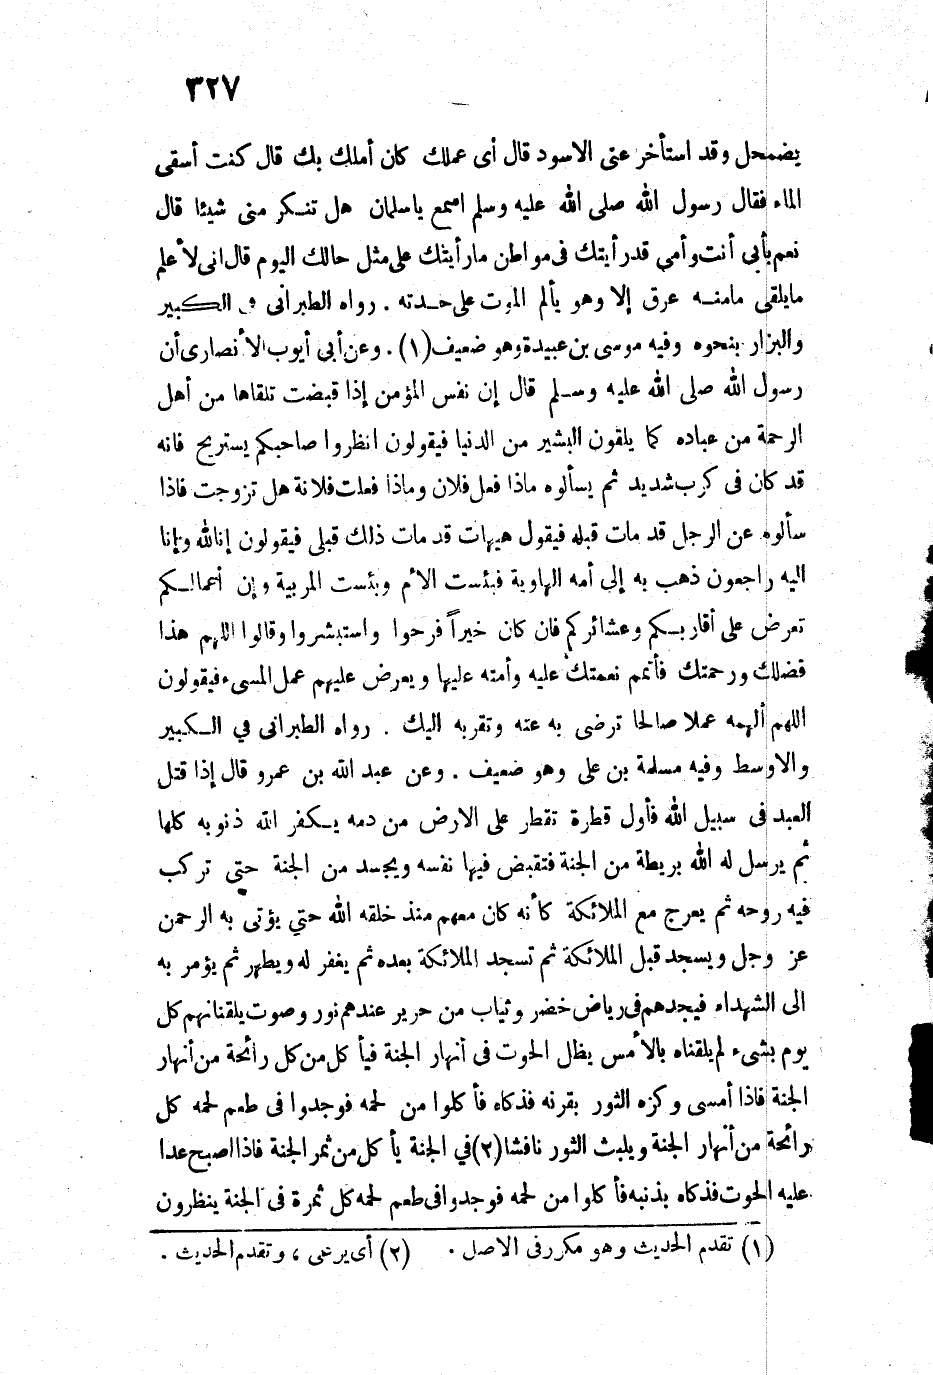 ٣٢٧
يضمحل وقد استأخر عنى الاسود قال أى عملك كان أملك بك قال كنت أسقى
الماء فقال رسول الله صلى الله عليه وسلم اسمع ياسلمان هل تنكر منى شيئا قال
نعم بأبي أنت وأمي قد رأيتك فى مواطن ما رأيتك على مثل حالك اليوم قال انى لأعلم
ما يلقى ما منه عرق إلا وهو يألم الموت على حدته . رواه الطبرانى فى الكبير
والبزار بنحوه وفيه موسى بن عبيدة وهو ضعيف (١) . وعن أبي أيوب الأنصارى أن
رسول الله صلى الله عليه وسلم قال إن نفس المؤمن إذا قبضت تلقاها من أهل
الرحمة من عباده كما يلقون البشير من الدنيا فيقولون انظروا صاحبكم يستريح فانه
قد كان فى كرب شديد ثم يسألوه ماذا فعل فلان وماذا فعلت فلانة هل تزوجت فاذا
سألوه عن الرجل قد مات قبله فيقول هيهات قد مات ذلك قبلى فيقولون إنا لله وإنا
اليه راجعون ذهب به إلى أمه الهاوية فبئست الأم وبئست المربية وإن أعمالكم
تعرض على أقاربكم وعشائركم فان كان خيراً فرحوا واستبشروا وقالوا اللهم هذا
فضلك ورحمتك فأتمم نعمتك عليه وأمته عليها ويعرض عليهم عمل المسىء فيقولون
اللهم ألهمه عملا صالحا ترضى به عنه وتقربه اليك . رواه الطبرانى في الكبير
والاوسط وفيه مسلمة بن على وهو ضعيف . وعن عبد الله بن عمرو قال إذا قتل
العبد فى سبيل الله فأول قطرة تقطر على الارض من دمه يكفر الله ذنوبه كلها
ثم يرسل له الله بريطة من الجنة فتقبض فيها نفسه وبجسد من الجنة حتى تركب
فيه روحه ثم يعرج مع الملائكة كأنه كان معهم منذ خلقه الله حتي يؤتى به الرحمن
عز وجل ويسجد قبل الملائكة ثم تسجد الملائكة بعده ثم يغفر له ويطهر ثم يؤمر به
الى الشهداء فيجدهم فى رياض خضر وثياب من حرير عندهم نور وصوت يلقنانهم كل
يوم بشىء لم يلقناه بالأمس يظل الحوت فى أنهار الجنة فيأكل من كل رائحة من أنهار
الجنة فاذا أمسى وكزه الثور بقرنه فذكاه فأكلوا من لحمه فوجدوا فى طعم لحمه كل
رائحة من أنهار الجنة ويلبث الثور نافشا (٢) في الجنة يأكل من ثمر الجنة فاذا اصبح عدا
عليه الحوت فذكاه بذنبه فأكلوا من لحمه فوجدوا فى طعم لحمه كل ثمرة فى الجنة ينظرون
(١) تقدم الحديث وهو مكرر فى الاصل . (٢) أى يرعى ، وتقدم الحديث .